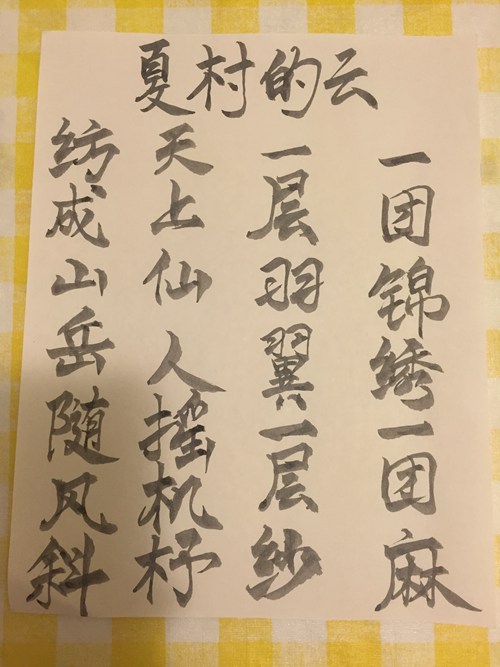 夏村的云
一团锦绣一团麻
一层羽翼一层纱
天上仙人摇机杼
纺成山岳随风斜